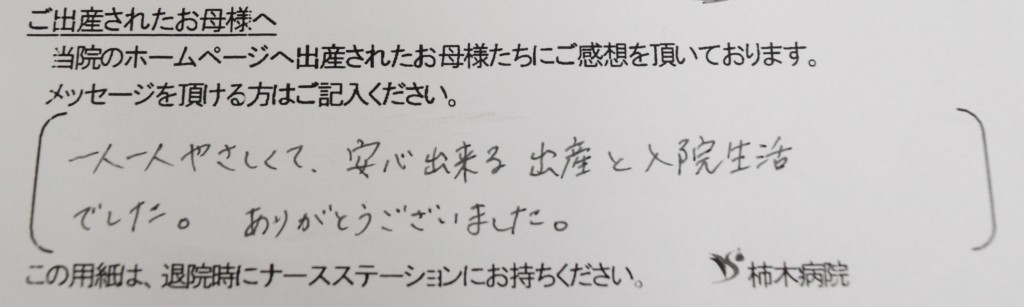 ご出産されたお母様へ
当院のホームページへ出産されたお母様たちにご感想を頂いております。
メッセージを頂ける方はご記入ください。
一人一人やさしくて、安心出来る出産と入院生活
でした。 ありがとうございました。
この用紙は、退院時にナースステーションにお持ちください。 柿木病院